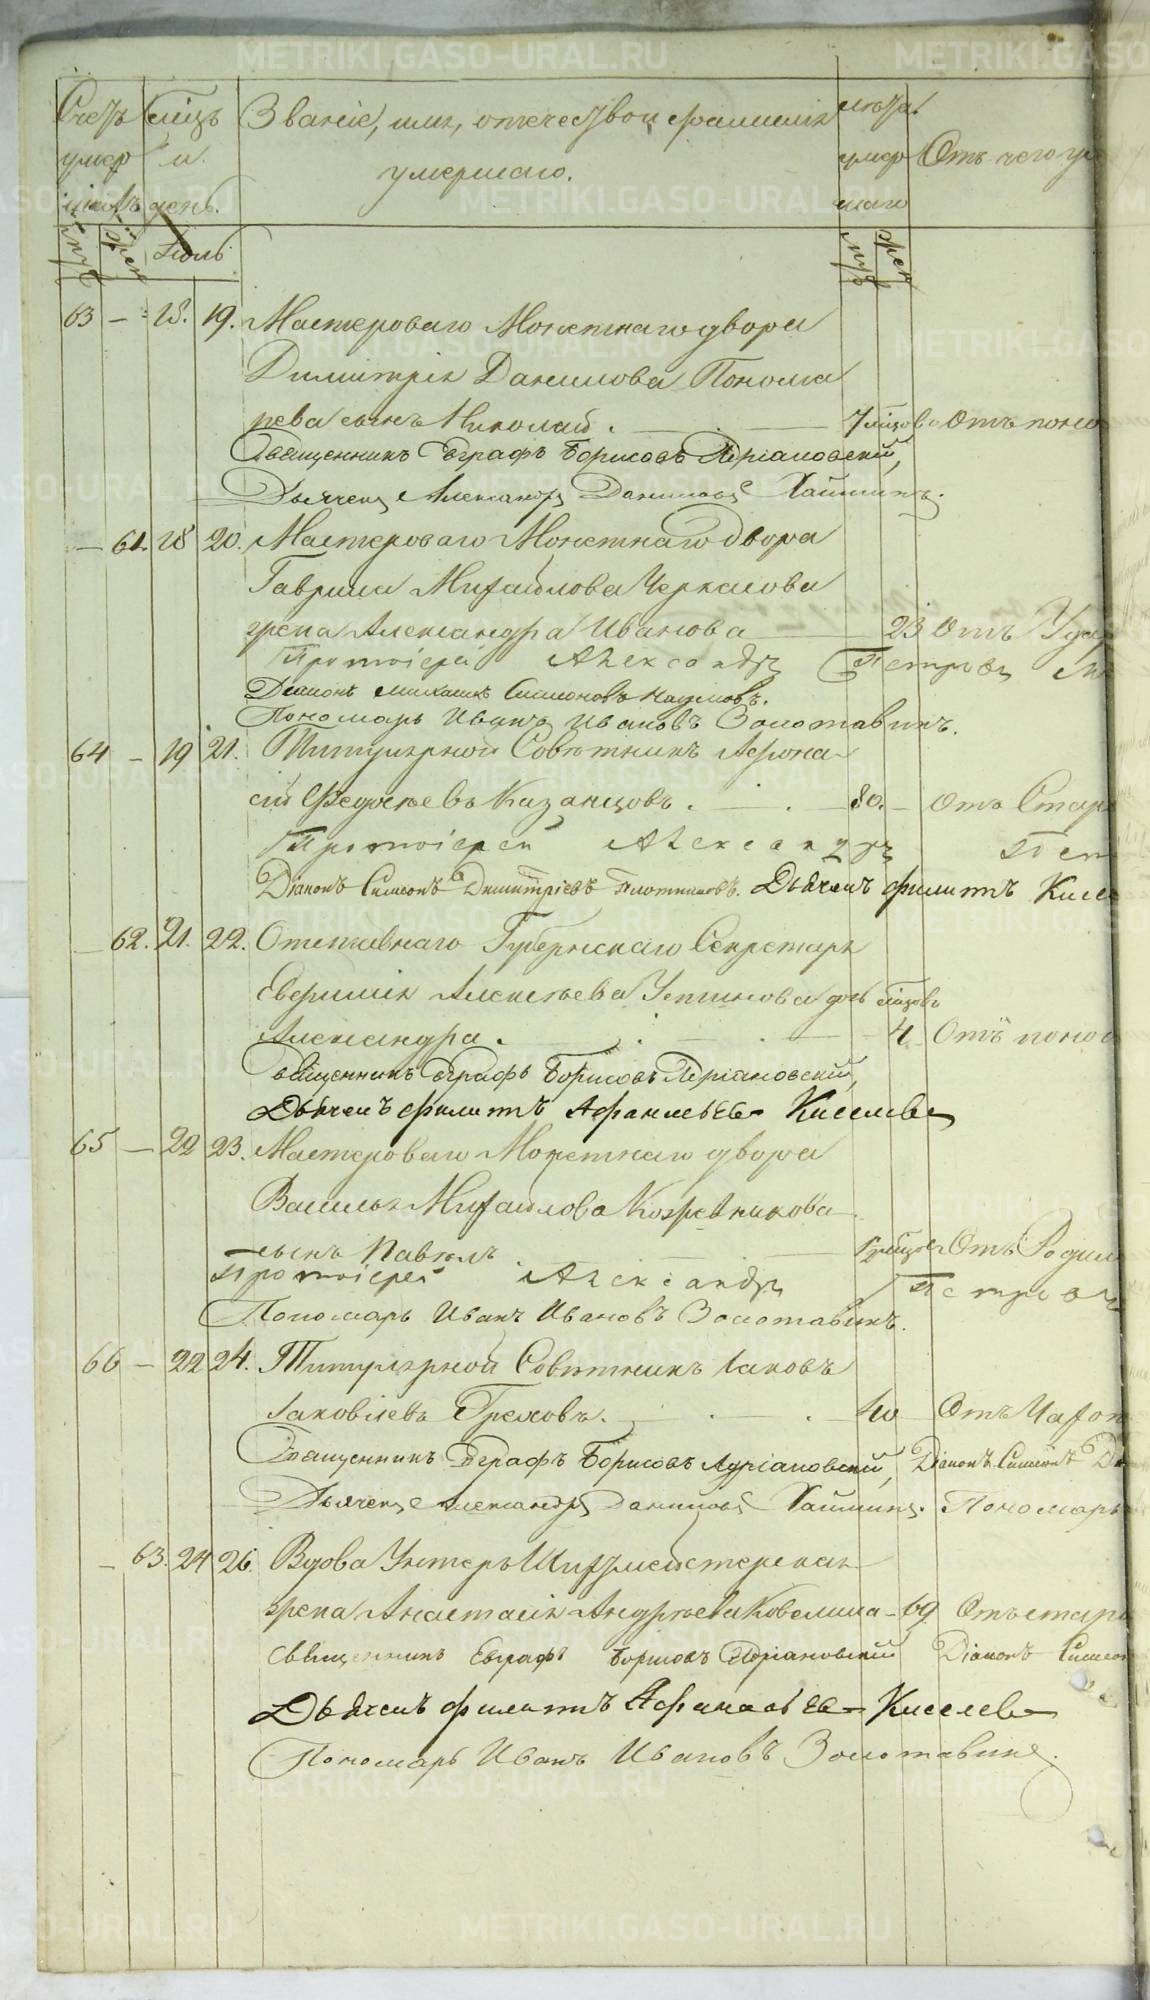 Счетъ умер шихъ. муж жен
Мѣсяцъ и день. Июль
Званіе, имя, отечество и фамилія
умершаго.
лѣта умер шаго муж жен
Отъ чего ум
63 — 18. 19. Мастероваго Монетнаго двора
Димитрія Данилова Понома
рева сынъ Николай. — 7 мѣсяцовъ Отъ поно
Священникъ Евграфъ Борисовъ Адріановскій,
Дьячекъ Александръ Даниловъ
— 61. 18 20. Мастероваго Монетнаго двора
Гаврила Михайлова Черкасова
жена Александра Иванова — 23 Отъ Удар
Протоіерей Александръ Петровъ
Діаконъ Михаилъ Симоновъ Наумовъ.
Пономарь Иванъ Ивановъ Золотавинъ.
64 — 19 21. Титулярной Совѣтникъ Афона
сій Федосѣевъ Казанцовъ. — 80. — Отъ Стар
Протоіерей Александръ Пет
Діаконъ Симеонъ Димитріевъ Плотниковъ. Дьячекъ Филиппъ Кисе
— 62. 21. 22. Отставнаго Губернскаго Секретаря
Евфимія Алексѣева Устинова дочь мѣсяцовъ
Александра. — 4 Отъ поно
Священникъ Евграфъ Борисовъ Адріановскій,
Дьячекъ Филиппъ Афанасьевъ Киселевъ
65 — 22 23. Мастероваго Монетнаго двора
Василья Михайлова Кожевникова
сынъ Павелъ — мѣсяцов Отъ Родим
Протоіерей Александръ Петровъ
Пономарь Иванъ Ивановъ Золотавинъ.
66 — 22 24. Титулярной Совѣтникъ Іаковъ
Іаковлевъ Грековъ. — 40 Отъ Чахот
Священникъ Евграфъ Борисовъ Адріановскій, Діаконъ Симеонъ Ди
Дьячекъ Александръ Даниловъ Пономарь
— 63. 24 26. Вдова Унтеръ Шихтмейстерская
жена Анастасія Андрѣева Ковелина — 69 Отъ стар
Священникъ Евграфъ Борисовъ Адріановскій Діаконъ Симеон
Дьячекъ Филиппъ Афанасьевъ Киселевъ
Пономарь Иванъ Ивановъ Золотавинъ.
METRIKI.GASO-URAL.RU